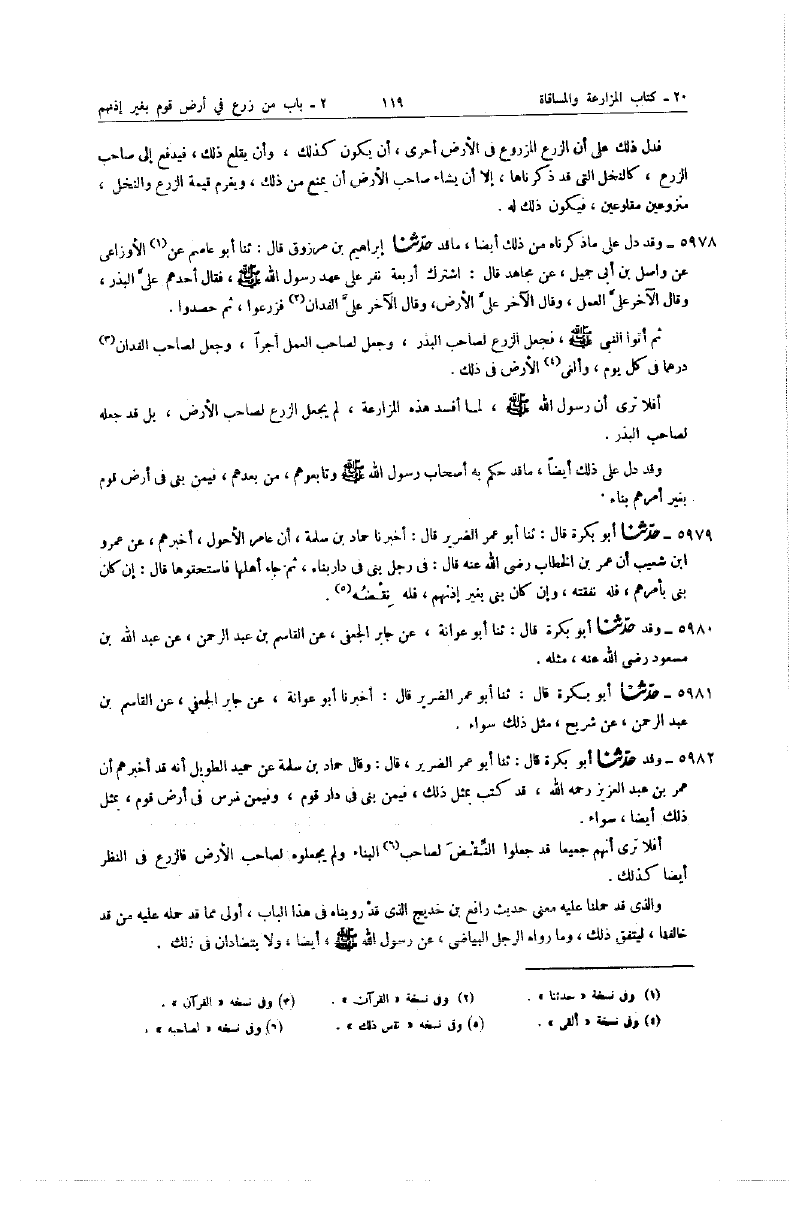 ٢٠ - كتاب المزارعة والمساقاة ١١٩ ٢ - باب من زرع في أرض قوم بغير إذنهم
فدل ذلك على أن الزرع المزروع فى الأرض أحرى ، أن يكون كذلك ، وأن يقلع ذلك ، فيدفع إلى صاحب
الزرع ، كالنخل التى قد ذكرناها ، إلا أن يشاء صاحب الأرض أن يمنع من ذلك ، ويغرم قيمة الزرع والنخل ،
منزوعين مقلوعين ، فيكون ذلك له .
٥٩٧٨ - وقد دل على ماذكرناه من ذلك أيضا ، ماقد حدّثنا إبراهيم بن مرزوق قال : ثنا أبو عاصم عن(١) الأوزاعى
عن واصل بن أبى جميل ، عن مجاهد قال : اشترك أربعة نفر على عهد رسول الله ﷺ ، فقال أحدهم علىَّ البذر ،
وقال الآخر علىَّ العمل ، وقال الآخر علىَّ الأرض، وقال الآخر علىَّ الفدان(٢) فزرعوا ، ثم حصدوا .
ثم أتوا النبى ﷺ ، فجعل الزرع لصاحب البذر ، وجعل لصاحب العمل أجراً ، وجعل لصاحب الفدان(٣)
درهما فى كل يوم ، وألغى(٤) الأرض فى ذلك .
أفلا ترى أن رسول الله ﷺ ، لما أفسد هذه المزارعة ، لم يجعل الزرع لصاحب الأرض ، بل قد جعله
لصاحب البذر .
وقد دل على ذلك أيضاً ، ماقد حكم به أصحاب رسول الله ﷺ وتابعوهم ، من بعدهم ، فيمن بنى فى أرض قوم
بغير أمرهم بناء .
٥٩٧٩ - حدّثنا أبو بكرة قال : ثنا أبو عمر الضرير قال : أخبرنا حماد بن سلمة ، أن عامر الأحول ، أخبرهم ، عن عمرو
ابن شعيب أن عمر بن الخطاب رضى الله عنه قال : فى رجل بنى فى دار بناء ، ثم جاء أهلها فاستحقوها قال : إن كان
بنى بأمرهم ، فله نفقته ، وإن كان بنى بغير إذنهم ، فله نِقْضُه(٥) .
٥٩٨٠ - وقد حدّثنا أبو بكرة قال : ثنا أبو عوانة ، عن جابر الجعفى ، عن القاسم بن عبد الرحمن ، عن عبد الله بن
مسعود رضى الله عنه ، مثله .
٥٩٨١ - حدّثنا أبو بكرة قال : ثنا أبو عمر الضرير قال : أخبرنا أبو عوانة ، عن جابر الجعفي ، عن القاسم بن
عبد الرحمن ، عن شريح ، مثل ذلك سواء .
٥٩٨٢ - وقد حدّثنا أبو بكرة قال : ثنا أبو عمر الضرير ، قال : وقال حماد بن سلمة عن حميد الطويل أنه قد أخبرهم أن
عمر بن عبد العزيز رحمه الله ، قد كتب بمثل ذلك ، فيمن بنى فى دار قوم ، وفيمن غرس فى أرض قوم ، بمثل
ذلك أيضا ، سواء .
أفلا ترى أنهم جميعا قد جعلوا النِّقْضَ لصاحب(٦) البناء ولم يجعلوه لصاحب الأرض فالزرع فى النظر
أيضا كذلك .
والذى قد حملنا عليه معنى حديث رافع بن خديج الذى قد رويناه فى هذا الباب ، أولى مما قد حمله عليه من قد
خالفنا ، ليتفق ذلك ، وما رواه الرجل البياضى ، عن رسول الله ﷺ ، أيضا ، ولا يتضادان فى ذلك .
(١) وفى نسخة « حدثنا » . (٢) وفى نسخة « القرآن » . (٣) وفى نسخه « القرآن » .
(٤) وفى نسخة « ألقى » . (٥) وفى نسخه « نقس ذلك » . (٦) وفى نسخه « لصاحبه » .